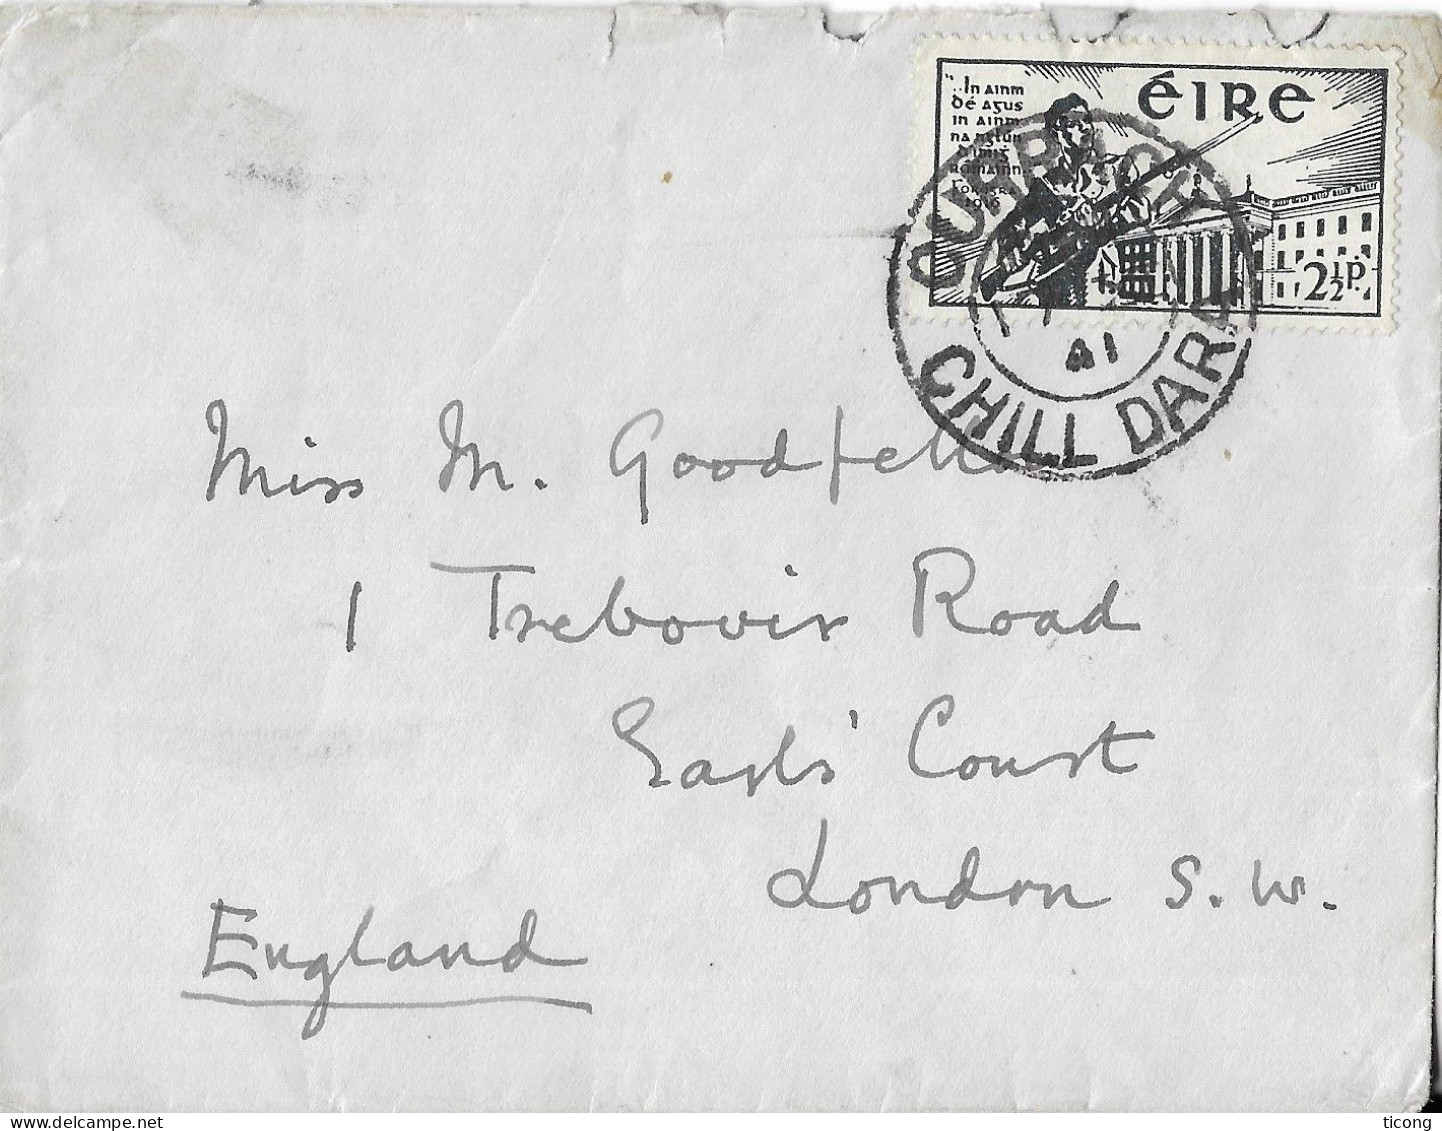 "..In ainm
Dé agus
in ainm
na nglún
romainn
1916
éire
2½p.
CURRACH
41
CHILL DARA
Miss M. Goodfellow
1 Trebovir Road
Earls' Court
London S.W.
England
delcampe.net
ticong